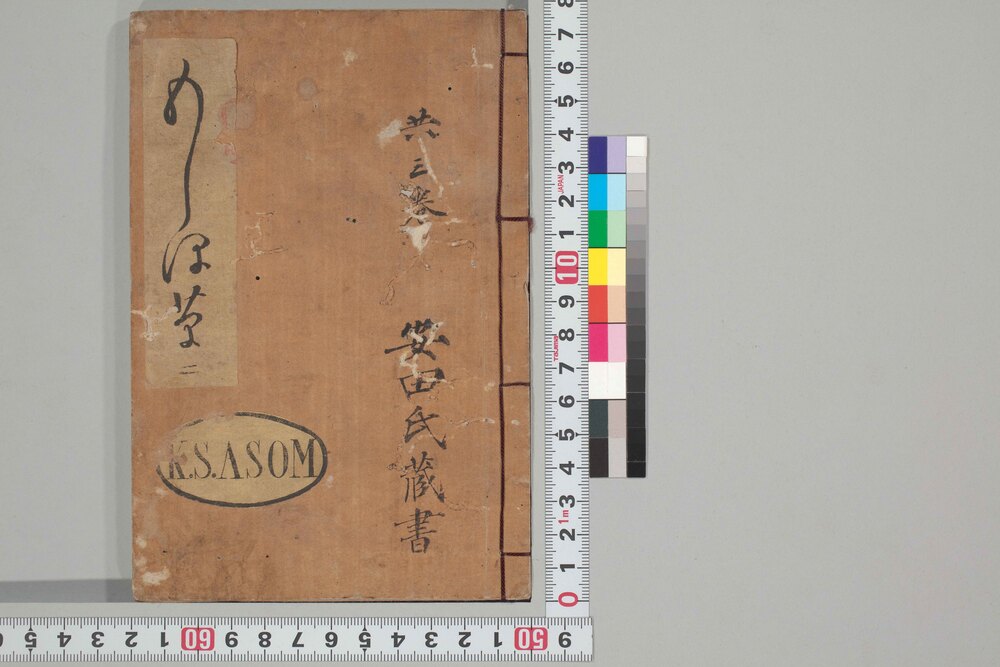 共三巻
安田氏蔵書
めしほ草
二
K.S.ASOM
8 7 6 5 4 3 2 1 10 9 8 7 6 5 4 3 2 1 0
JAPAN
Tajima
1m
6 5 4 3 2 1 60 9 8 7 6 5 4 3 2 1 50 9